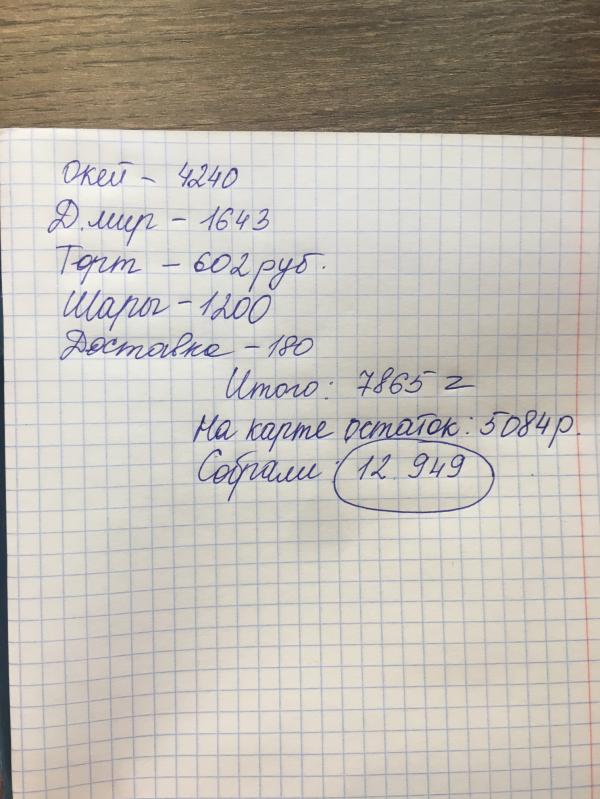 Окей - 4240
Д.мир - 1643
Торт - 602 руб.
Шары - 1200
Доставка - 180
Итого: 7865 г
На карте остаток: 5084 р.
Собрали 12.949